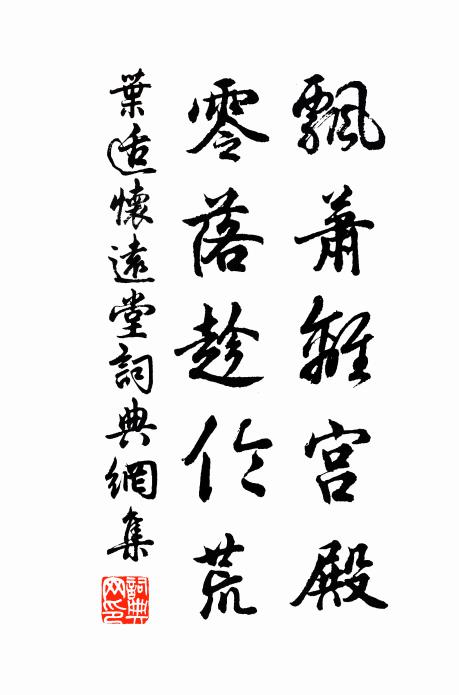 飄蕭離宫殿
零落趁伧荒
葉适懷遠堂詞典網集
詞典网印